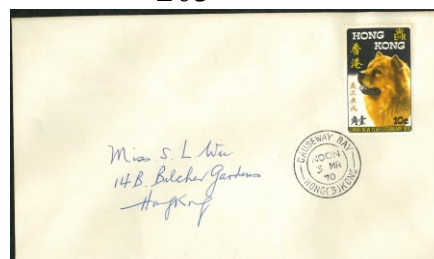 HONG
KONG
香
港
E R
10¢
CAUSEWAY BAY
NOON
3 MR
70
HONG (5) KONG
Miss. S. L. Wu
14B. Belcher Gardens
Hongkong